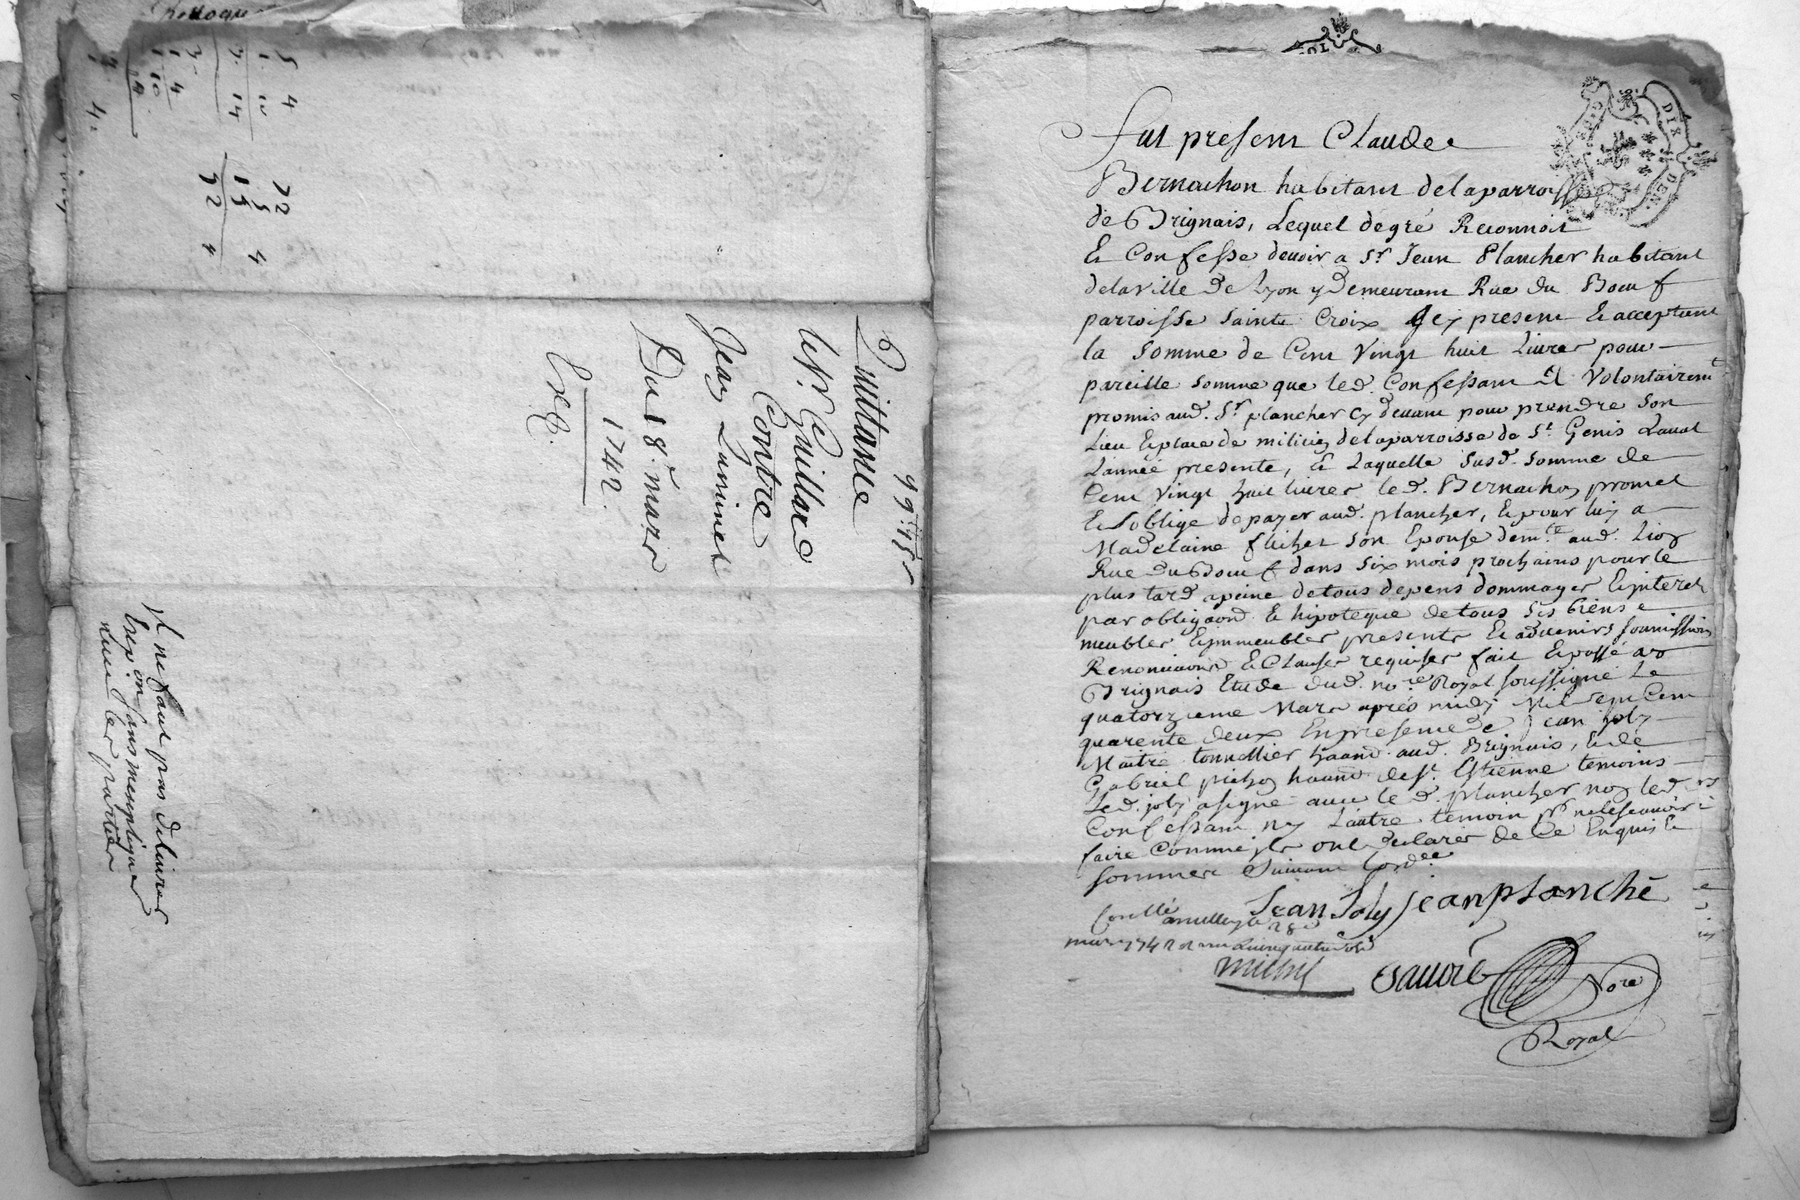 5 4
1. 10
3. 14
72
15 4
92 4
4.
99tt 15s
Quittance
Sr. Guillard
Contre
Jean
Du 18e. mars
1742.
Exp.
Il ne faut pas delivrer
Exp on sans m'expliquer
les parties
Fut present Claude
Bernachon habitant de la parroisse
de Brignais, Lequel de gré Reconnoit
Et Confesse devoir a Sr Jean Plancher habitant
de la ville de Lyon y demeurant Rue du Boeuf
parroisse Sainte Croix icy present Et acceptant
la somme de Cent vingt huit Livres pour
pareille somme que led. Confessant a volontairemt
promis aud. Sr plancher Cy devant pour prendre son
Lieu Et place de milicien de la parroisse de St. Genis Laval
L'année presente, Et Laquelle susd. somme de
Cent vingt huit livres led. Bernachon promet
Et s'oblige de payer aud. plancher, Et pour luy a
Madelaine son Epouse demte. aud. Lion
Rue du Boeuf dans six mois prochains pour le
plus tard a peine de tous depens dommages Et interet
par obligaon. Et hipoteque de tous ses biens
meubles Et immeubles presents Et advenirs soumissions
Renonciaons Et Clauses requises fait Et passé au
Brignais Etude dud. nore. Royal soussigné Le
quatorzieme Mars apres midy Mil sept Cent
quarente deux En presence de Jean Joly
Maitre tonnellier haant. aud. Brignais, Et de
Gabriel pichon haant de St. Estienne temoins
Led. joly a signé avec le d. plancher non led.
Confessant ny L'autre temoin pr ne le scavoir
faire Comme ils ont declarés de ce Enquis Et
sommés Suivant l'ordce
Jean Joly jean planché
Conllé a millery le 28e
mars 1742
Nore
Royal
DIX DEN.